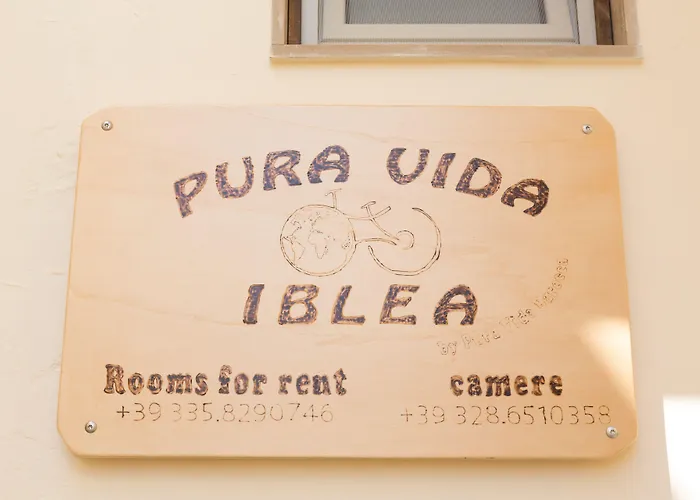 PURA VIDA
IBLEA
by Pura Vida
Rooms for rent camere
+39 335.8290746 +39 328.6510358